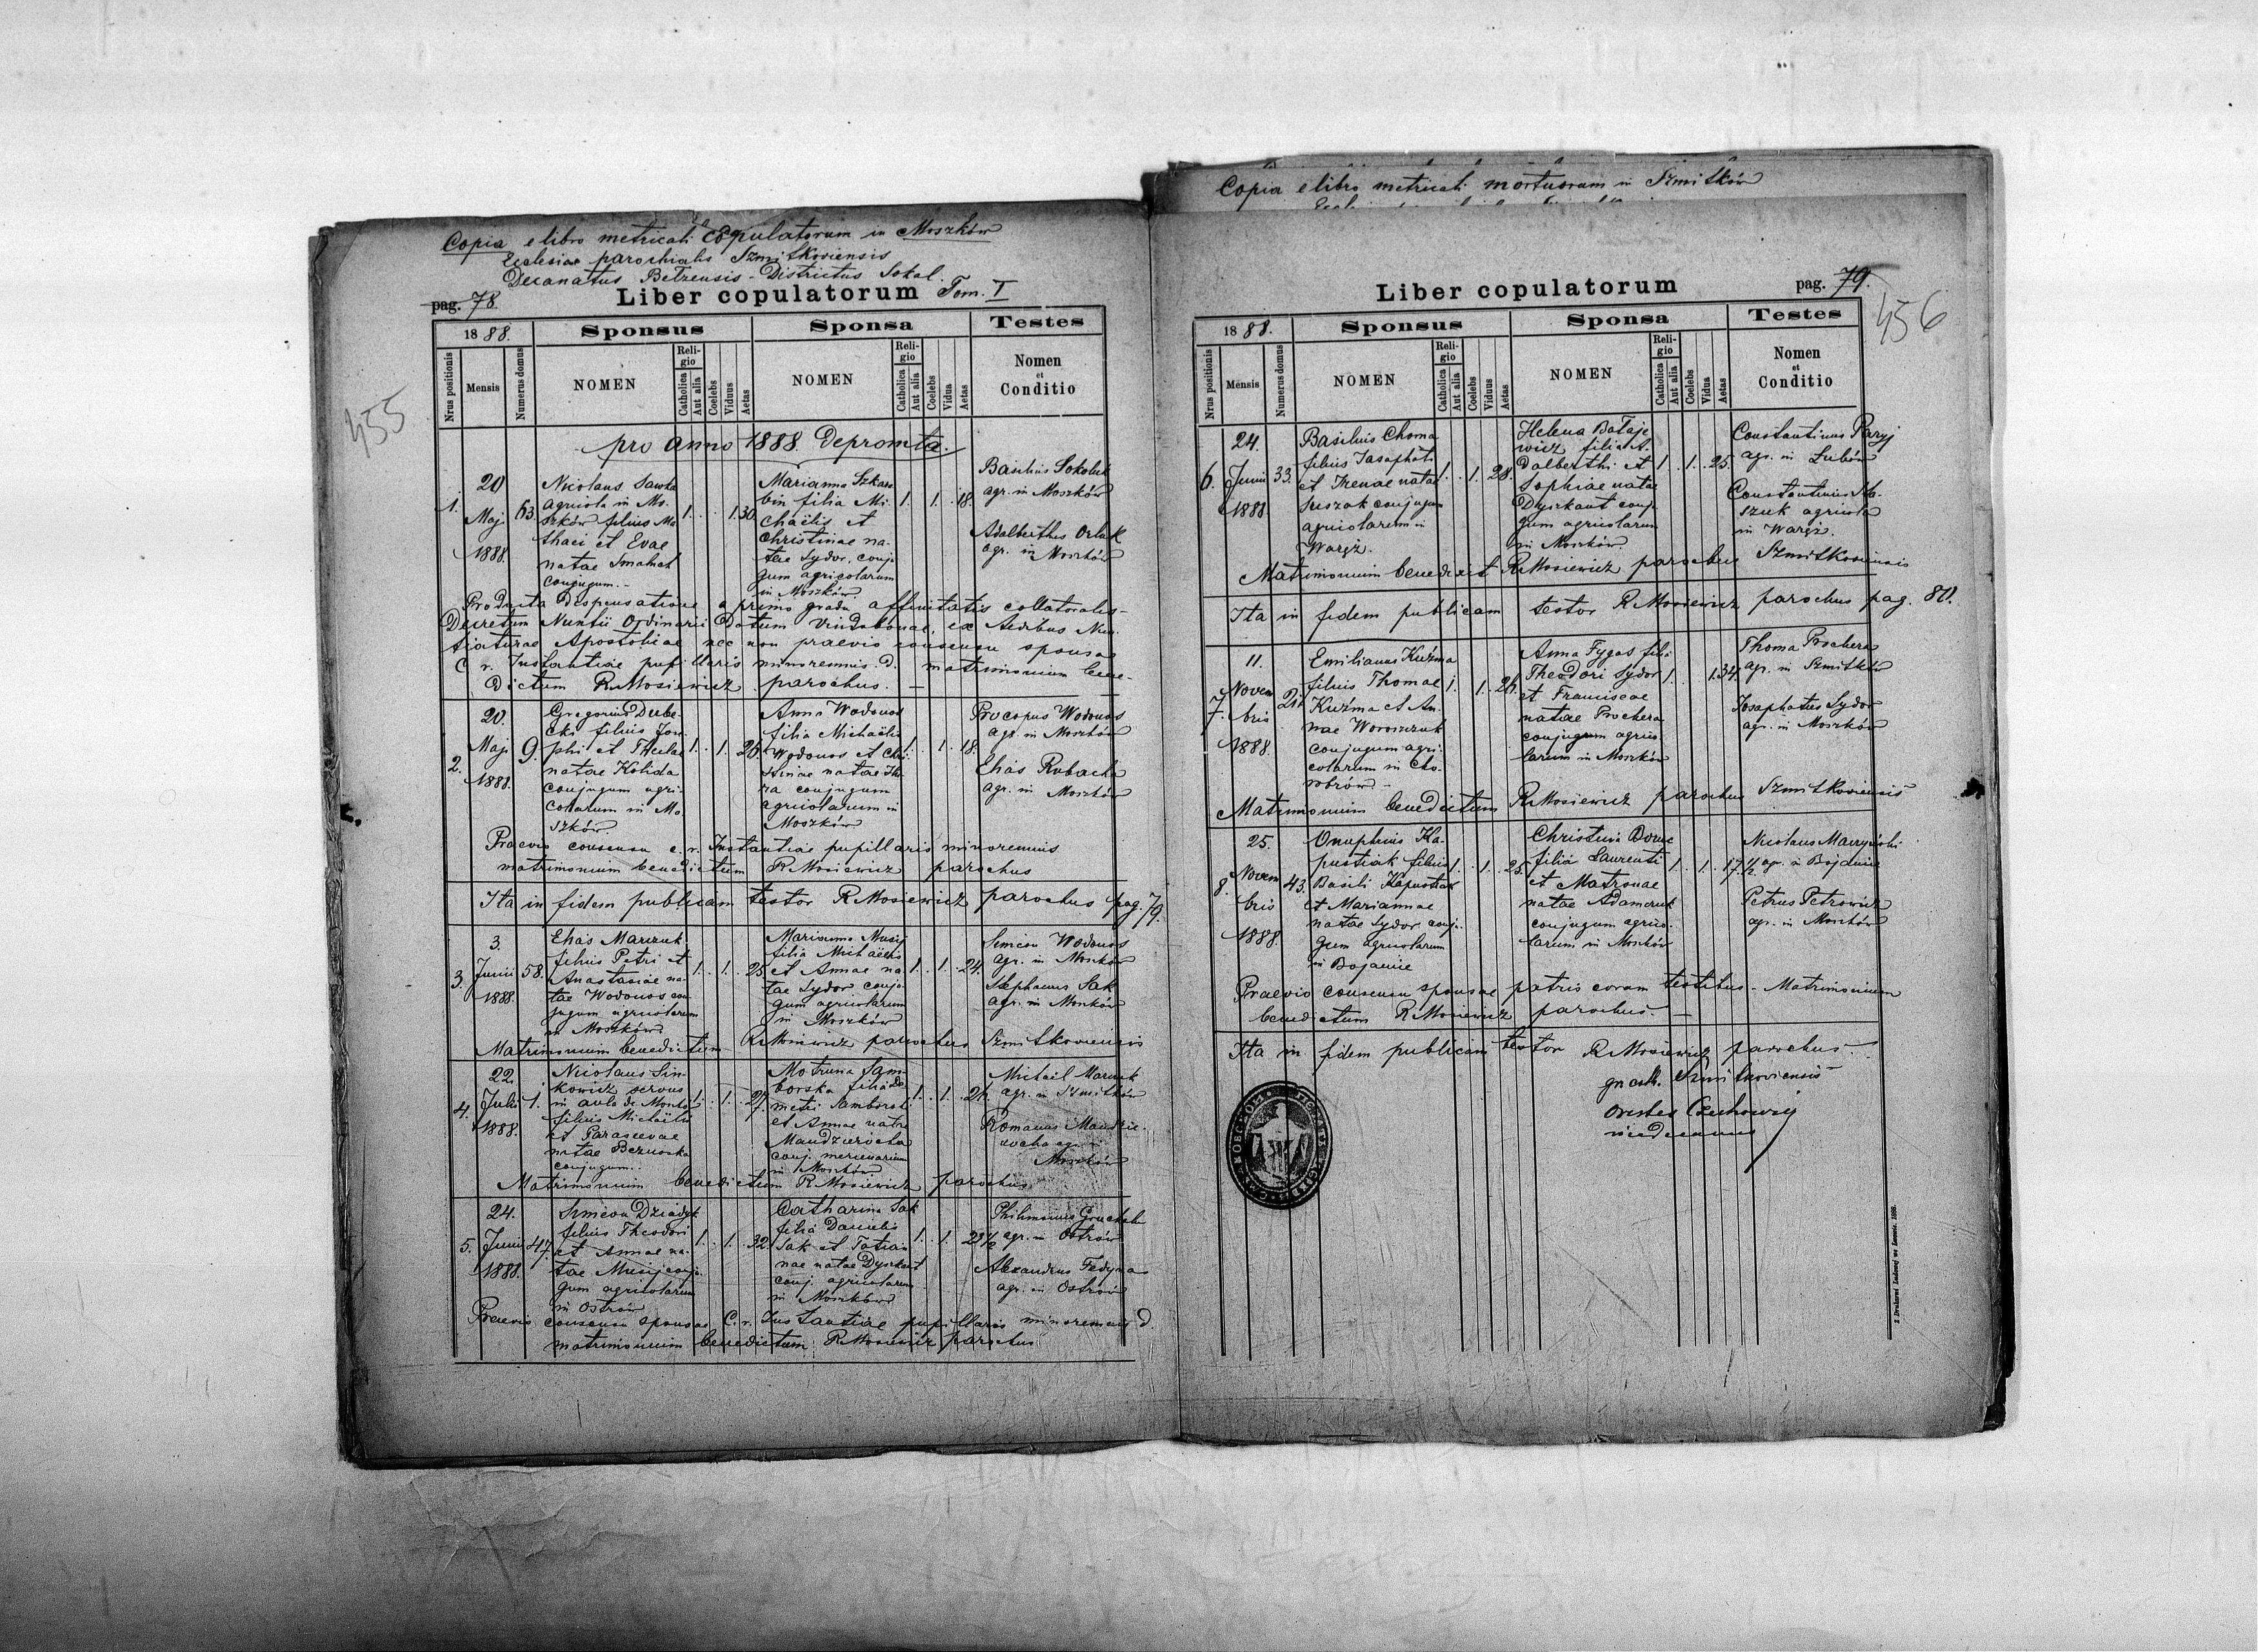 Copia e libro metricali copulatorum in Moszków
Ecclesiae parochialis Szmitkoviensis
Decanatus Betzensis - Districtus Sokal.
pag. 78.
Liber copulatorum Tom. I
455
1888.
Sponsus
Sponsa
Testes
Nrus positionis
Mensis
Numerus domus
NOMEN
Religio
Catholica
Aut alia
Coelebs
Viduus
Aetas
NOMEN
Religio
Catholica
Aut alia
Coelebs
Vidua
Aetas
Nomen
et
Conditio
pro anno 1888. depromta.
1.
20
Maj
1888.
63.
Nicolaus Sawka
agricola in Mo-
szków filius Ma
thaei et Evae
natae Smahet
conjugum.-
1. 1. 30.
Marianna Szkara
bin filia Mi
chaëlis et
Christinae na-
tae Sydor, conju
gum agricolarum
in Moszków
1. 1. 18.
Basilius Sokoluk
agr. in Moszków
Adalberthus Orluk
agr. in Moszków
Producta dispensatione a primo gradu affinitatis collateralis-
Decretum Nuntii Ordinarii Datum Vindobonae, ex Aedibus Nun-
tiaturae Apostolicae nec non praevio consensu sponsae
C. r. Instantiae pupillaris minorennis. d. matrimonium bene-
dictum R. Mosiewicz parochus.
2.
20.
Maj
1888.
9.
Gregorius Dube
cki filius Jose
phi et Theclae
natae Kolida
conjugum agri-
colarum in Mo
szków.
1. 1. 26.
Anna Wodonos
filia Michaëlis
Wodonos et Chri
stinae natae
conjugum
agricolarum in
Moszków
1. 1. 18.
Procopus Wodonos
agr. in Moszków
Elias Rubacha
agr. in Moszków
Praevio consensu c. r. Instantiae pupillaris minorennis
matrimonium benedictum R. Mosiewicz parochus
Ita in fidem publicam testor R. Mosiewicz parochus pag. 79.
3.
3.
Junii
1888.
58.
Elias Marczuk
filius Petri et
Anastasiae na-
tae Wodonos con
jugum agricolarum
in Moszków
1. 1. 25.
Marianna Musij
filia Michaëlis
et Annae na
tae Sydor conju
gum agricolarum
in Moszków
1. 1. 24.
Simeon Wodonos
agr. in Moszków
Stephanus Sak
agr. in Moszków
Matrimonium benedictum R. Mosiewicz parochus Szmitkoviensis
4.
22.
Julii
1888.
1.
Nicolaus Sin-
kowicz servus
in aula de Moszków
filius Michaëlis
et Parascevae
natae
conjugum.
1. 1. 27.
Motruna Sam-
borska filia De
metri Samborski
et Annae natae
Mandziuocha
conj. mercenarium
in Moszków
1. 1. 26.
Michail Marczuk
agr. in Szmitków
Romanus Mandzie-
wocha agr. in
Moszków
Matrimonium benedictum R. Mosiewicz parochus
5.
24.
Junii
1888.
47.
Simeon Dziadyk
filius Theodori
et Annae na-
tae Musij conju
gum agricolarum
in Ostrów
1. 1. 32.
Catharina Sak
filia Danielis
Sak et Tatia-
nae natae Dyszkant
conj. agricolarum
in Moszków
1. 1. 23½
agr. in Ostrów
Alexandrus Fedyna
agr. in Ostrów
Praevio consensu sponsae C. r. Instantiae pupillaris minorennis d.
matrimonium benedictum R. Mosiewicz parochus
Copia e libro metricali mortuorum in Szmitków
Liber copulatorum
pag. 79.
456
1888.
Sponsus
Sponsa
Testes
Nrus positionis
Mensis
Numerus domus
NOMEN
Religio
Catholica
Aut alia
Coelebs
Viduus
Aetas
NOMEN
Religio
Catholica
Aut alia
Coelebs
Vidua
Aetas
Nomen
et
Conditio
6.
24.
Junii
1888
33.
Basilius Choma
filius Josaphati
et Irenae natae
Suszak conjugum
agricolarum in
Waręż.
1. 1. 28.
Helena Bataje
wicz filia A-
dalberthi et
Sophiae natae
Dyszkant conju
gum agricolarum
in Moszków.
1. 1. 25.
Constantinus Paryj
agr. in Łubów
Constantinus
szuk agricola
in Waręż.
Matrimonium benedixit R. Mosiewicz parochus Szmitkoviensis
Ita in fidem publicam testor R. Mosiewicz parochus pag. 80.
7.
11.
Novem
bris
1888.
21.
Emilianus Kuźma
filius Thomae
Kuźma et An-
nae Woronczuk
conjugum agri-
colarum in Cho-
robrów -
1. 1. 26.
Anna Fygas filia
Theodori Sydor
et Franciscae
natae Prochera
conjugum agrico-
larum in Moszków
1. 1. 34.
Thoma Prochera
agr. in Szmitków
Josaphatus Sydor
agr. in Moszków
Matrimonium benedictum R. Mosiewicz parochus Szmitkoviensis
8.
25.
Novem
bris
1888.
43.
Onuphrius Ka-
pustiak filius
Basili Kapustiak
et Mariannae
natae Sydor conju-
gum agricolarum
in Bojanice
1. 1. 25.
Christina
filia Laurenti
et Matronae
natae Adamczuk
conjugum agrico-
larum in Moszków
1. 1. 17½
Nicolaus
agr. in Bojanice
Petrus Petrowicz
agr. in Moszków
Praevio consensu sponsae patris coram testibus - Matrimonium
benedictum R. Mosiewicz parochus. -
Ita in fidem publicam testor R. Mosiewicz parochus.
gr. cath. Szmitkoviensis
Orestes Czechowicz
Z Drukarni Ludowej we Lwowie. 1888.